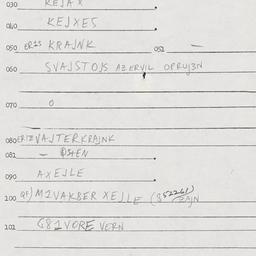 030 KEJAX
040 KEJXES
050 ER1S KRAJNK 051 —
060 SVAJSTOJS AZERVIL OPRUJ3N
070 O
080 ER12 VAJTERKRAJNK
081 —
090 AXEJLE
100 M1VAKBER XEJLE
101 G81VORE VERN